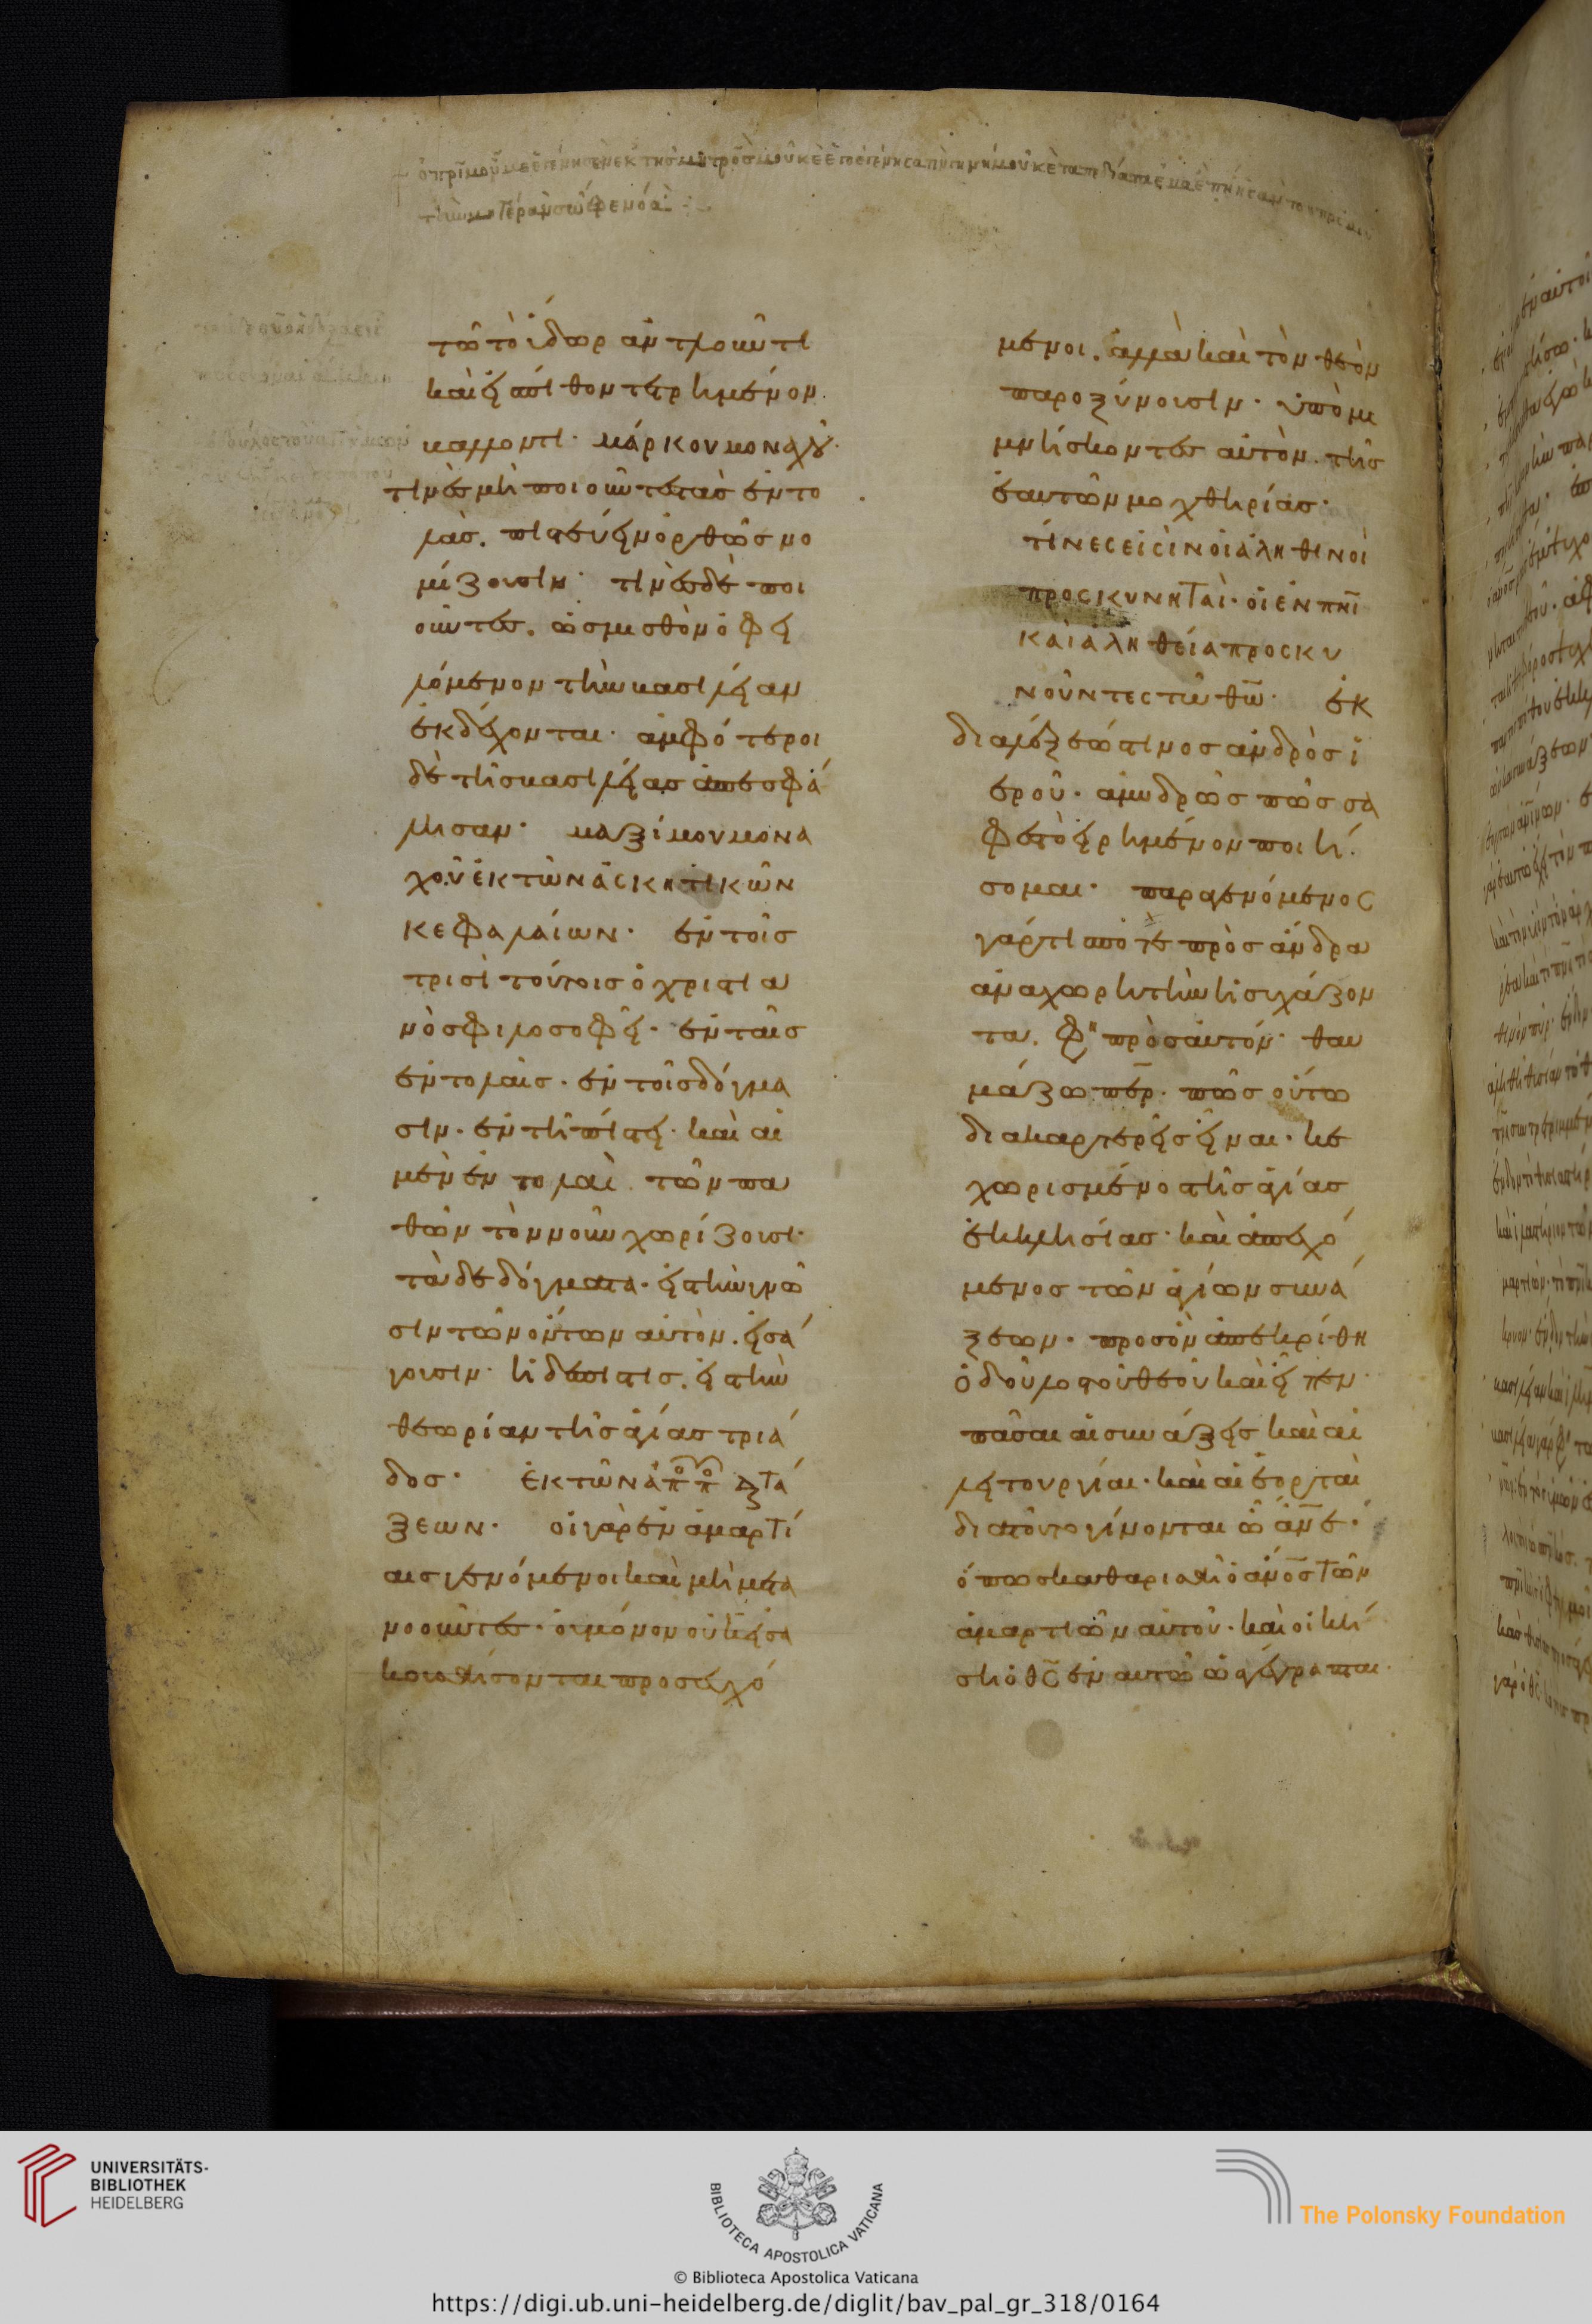 τῶ τὸ ὕδωρ ἀντλοῦντι
καὶ εἰς πίθον τετρημένον
βάλλοντι· μάρκου μοναχοῦ·
τινὲς μὴ ποιοῦντες τὰς ἐντο
λὰς. πιστεύειν ὀρθῶς νο
μίζουσιν· τινὲς δὲ ποι
οῦντες. ὡς μισθὸν ὀφει
λόμενον τὴν βασιλείαν
ἐκδέχονται· ἀμφότεροι
δὲ τῆς βασιλείας ἀπεσφά
λησαν· μαξίμου μονα
χοῦ ἐκ τῶν ἀσκητικῶν
κεφαλαίων· ἐν τοῖς
τρισὶ τούτοις ὁ χριστια
νὸς φιλοσοφεῖ· ἐν ταῖς
ἐντολαῖς· ἐν τοῖς δόγμα
σιν· ἐν τῆ πίστει· καὶ αἱ
μὲν ἐντολαὶ τῶν πα
θῶν τὸν νοῦν χωρίζουσι·
τὰ δὲ δόγματα· εἰς τὴν γνῶ
σιν τῶν ὄντων αὐτὸν. εἰσά
γουσιν· ἡ δὲ πίστις. εἰς τὴν
θεωρίαν τῆς ἁγίας τριά
δος· ἐκ τῶν ἀπ̅π̅ διατά
ξεων· οἱ γὰρ ἐν ἁμαρτί
αις γενόμενοι καὶ μὴ μετα
νοοῦντες· οὐ μόνον οὐκ εἰσα
κουσθήσονται προσευχό
μενοι. ἀλλὰ καὶ τὸν θεὸν
παροξύνουσιν· ὑπομι
μνήσκοντες αὐτὸν. τῆς
ἑαυτῶν μοχθηρίας·
τίνες εἰσὶν οἱ ἀληθινοὶ
προσκυνηταὶ· οἱ ἐν πν̅ι
καὶ ἀληθεία προσκυ
νοῦντες τῶ θω̅· ἐκ
διαλέξεώς τινος ἀνδρὸς ἱ
εροῦ· ἀμυδρῶς πῶς σα
φὲς τὸ εἰρημένον ποιή
σομαι· παραγενόμενος
γάρ τί ποτε πρὸς ἄνδρα
ἀναχωρητὴν ἡσυχάζον
τα. φη πρὸς αὐτόν· θαυ
μάζω πε̅ρ· πῶς οὕτω
διακαρτερεῖς εἶναι· κε
χωρισμένος τῆς ἁγίας
ἐκκλησίας· καὶ ἀπεχό
μενος τῶν ἁγίων συνά
ξεων· πρὸς ὃν ἀπεκρίθη
ὁ δοῦλος τοῦ θεοῦ καὶ εἶπεν·
πᾶσαι αἱ συνάξεις καὶ αἱ
λειτουργίαι· καὶ αἱ ἑορταὶ
διὰ τοῦτο γίνονται ὦ ἄν̅ε·
ὅπως καθαρισθῆ ὁ ἄν̅ος τῶν
ἁμαρτιῶν αὐτοῦ· καὶ οἰκή
ση ὁ θς̅ ἐν αυτῶ ὡς γέγραπται·
UNIVERSITÄTS-
BIBLIOTHEK
HEIDELBERG
BIBLIOTECA APOSTOLICA VATICANA
The Polonsky Foundation
© Biblioteca Apostolica Vaticana
https://digi.ub.uni-heidelberg.de/diglit/bav_pal_gr_318/0164